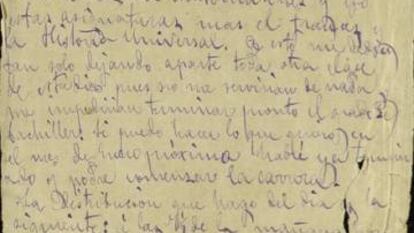 estas asignaturas mas el francés y
la Historia Universal. A esto me
tan solo dejando aparte toda otra clase
de estudios pues no me servirian de nada
me impedirian terminar pronto el grado
bachiller. Si puedo hacer lo que quiero en
el mes de Enero próximo habré ya termin
ado y podre comenzar la carrera.
La Distribucion que hago del dia es la
siguiente: á las de la mañana